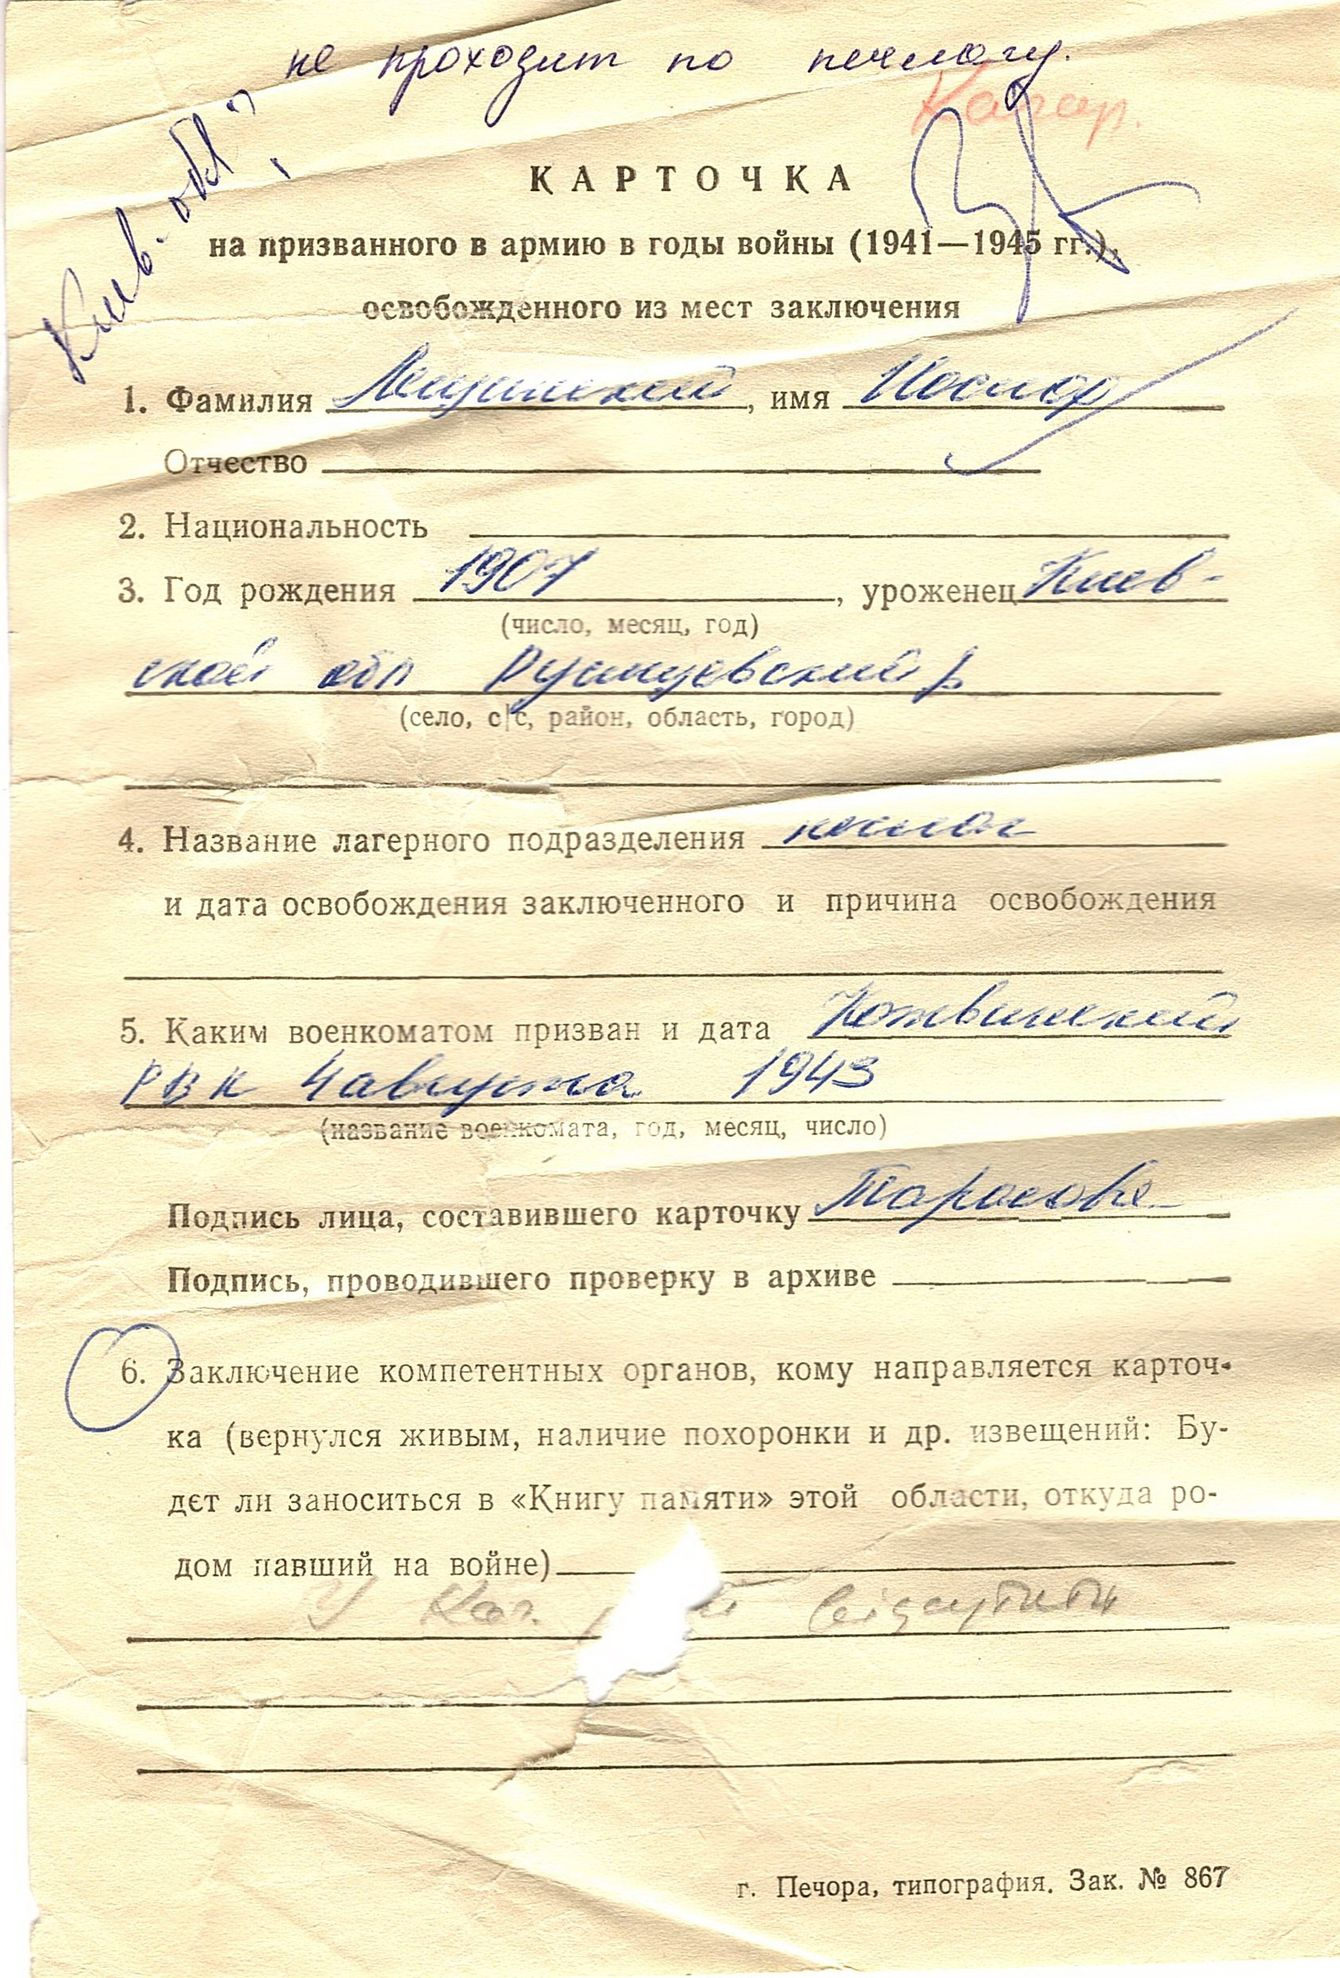 не проходит по печлагу.
Кагар.
Киев. обл?
КАРТОЧКА
на призванного в армию в годы войны (1941—1945 гг.),
освобожденного из мест заключения
1. Фамилия Лещинский, имя Иосиф
Отчество
2. Национальность
3. Год рождения 1907, уроженец Киев-
(число, месяц, год)
ской обл Ружицевский р
(село, с/с, район, область, город)
4. Название лагерного подразделения печлаг
и дата освобождения заключенного и причина освобождения
5. Каким военкоматом призван и дата Кожвинский
РВК 4 августа 1943
(название военкомата, год, месяц, число)
Подпись лица, составившего карточку
Подпись, проводившего проверку в архиве
6. Заключение компетентных органов, кому направляется карточ-
ка (вернулся живым, наличие похоронки и др. извещений: Бу-
дет ли заноситься в «Книгу памяти» этой области, откуда ро-
дом павший на войне)
У Каг. відсутній
г. Печора, типография. Зак. № 867